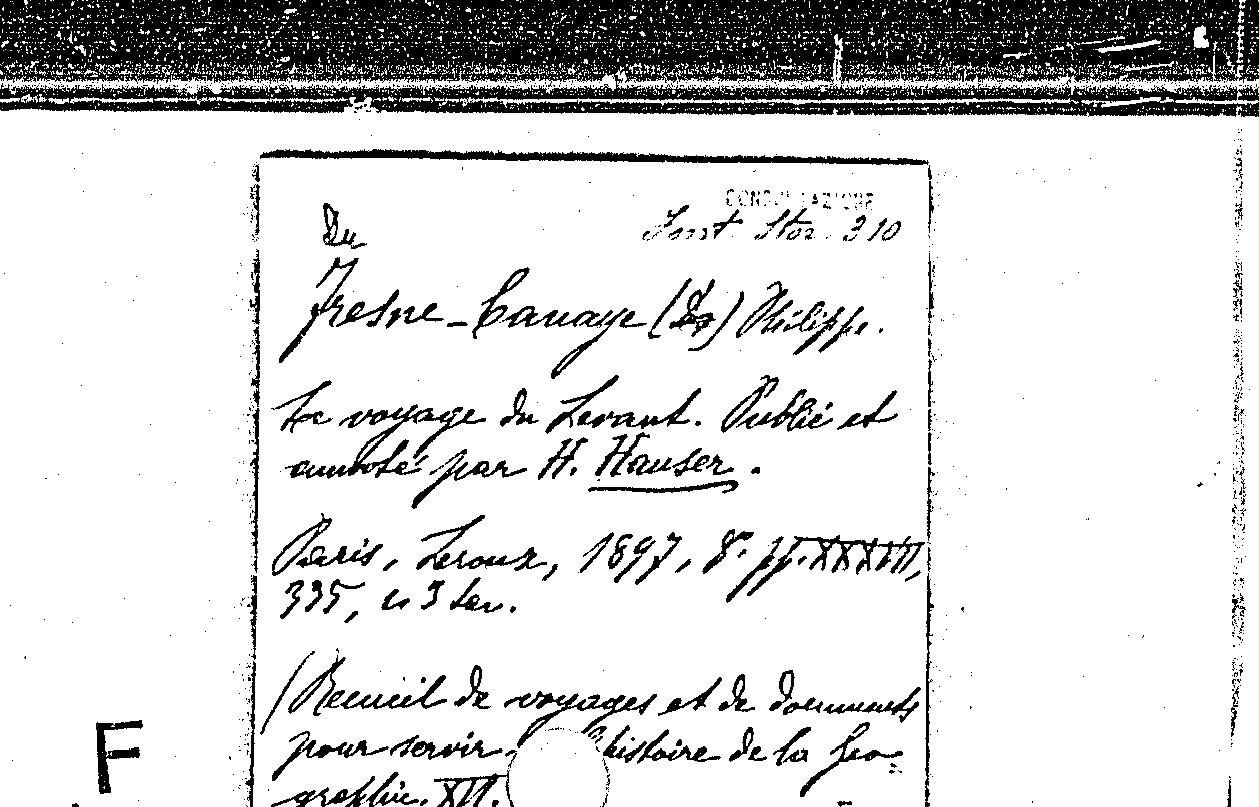 CONSOLAZIONE
Du
Stor. 310
Fresne-Canaye (Du) Philippe.
Le voyage du Levant. Publié et
annoté par H. Hauser.
Paris, Leroux, 1897, 8° pp. XXXVII,
335, c 3 tav.
(Recueil de voyages et de documents
pour servir histoire de la Géo-
graphie. XVI.
F